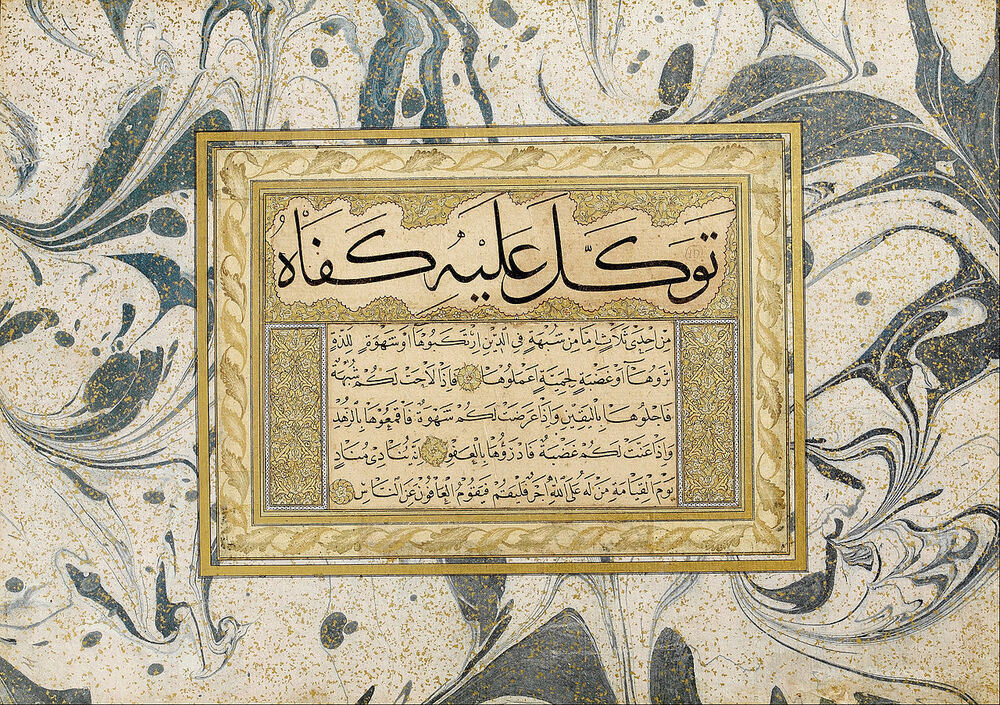 تَوَكَّلَ عَلَيْهِ كَفَاهُ
مِن احدى ثلاث اما من شبهة فى الدين ارتكبوها او شهوة للذة
اثروها او غضبة لحمية اعملوها فاذا لاحت لكم شبهة
فاجلوها باليقين واذا عرضت لكم شهوة فاقمعوها بالزهد
واذا عنت لكم غضبة فادرؤها بالعفو ينادى مناد
يوم القيامة من له على الله اجر فليقم فيقوم العافون عن الناس